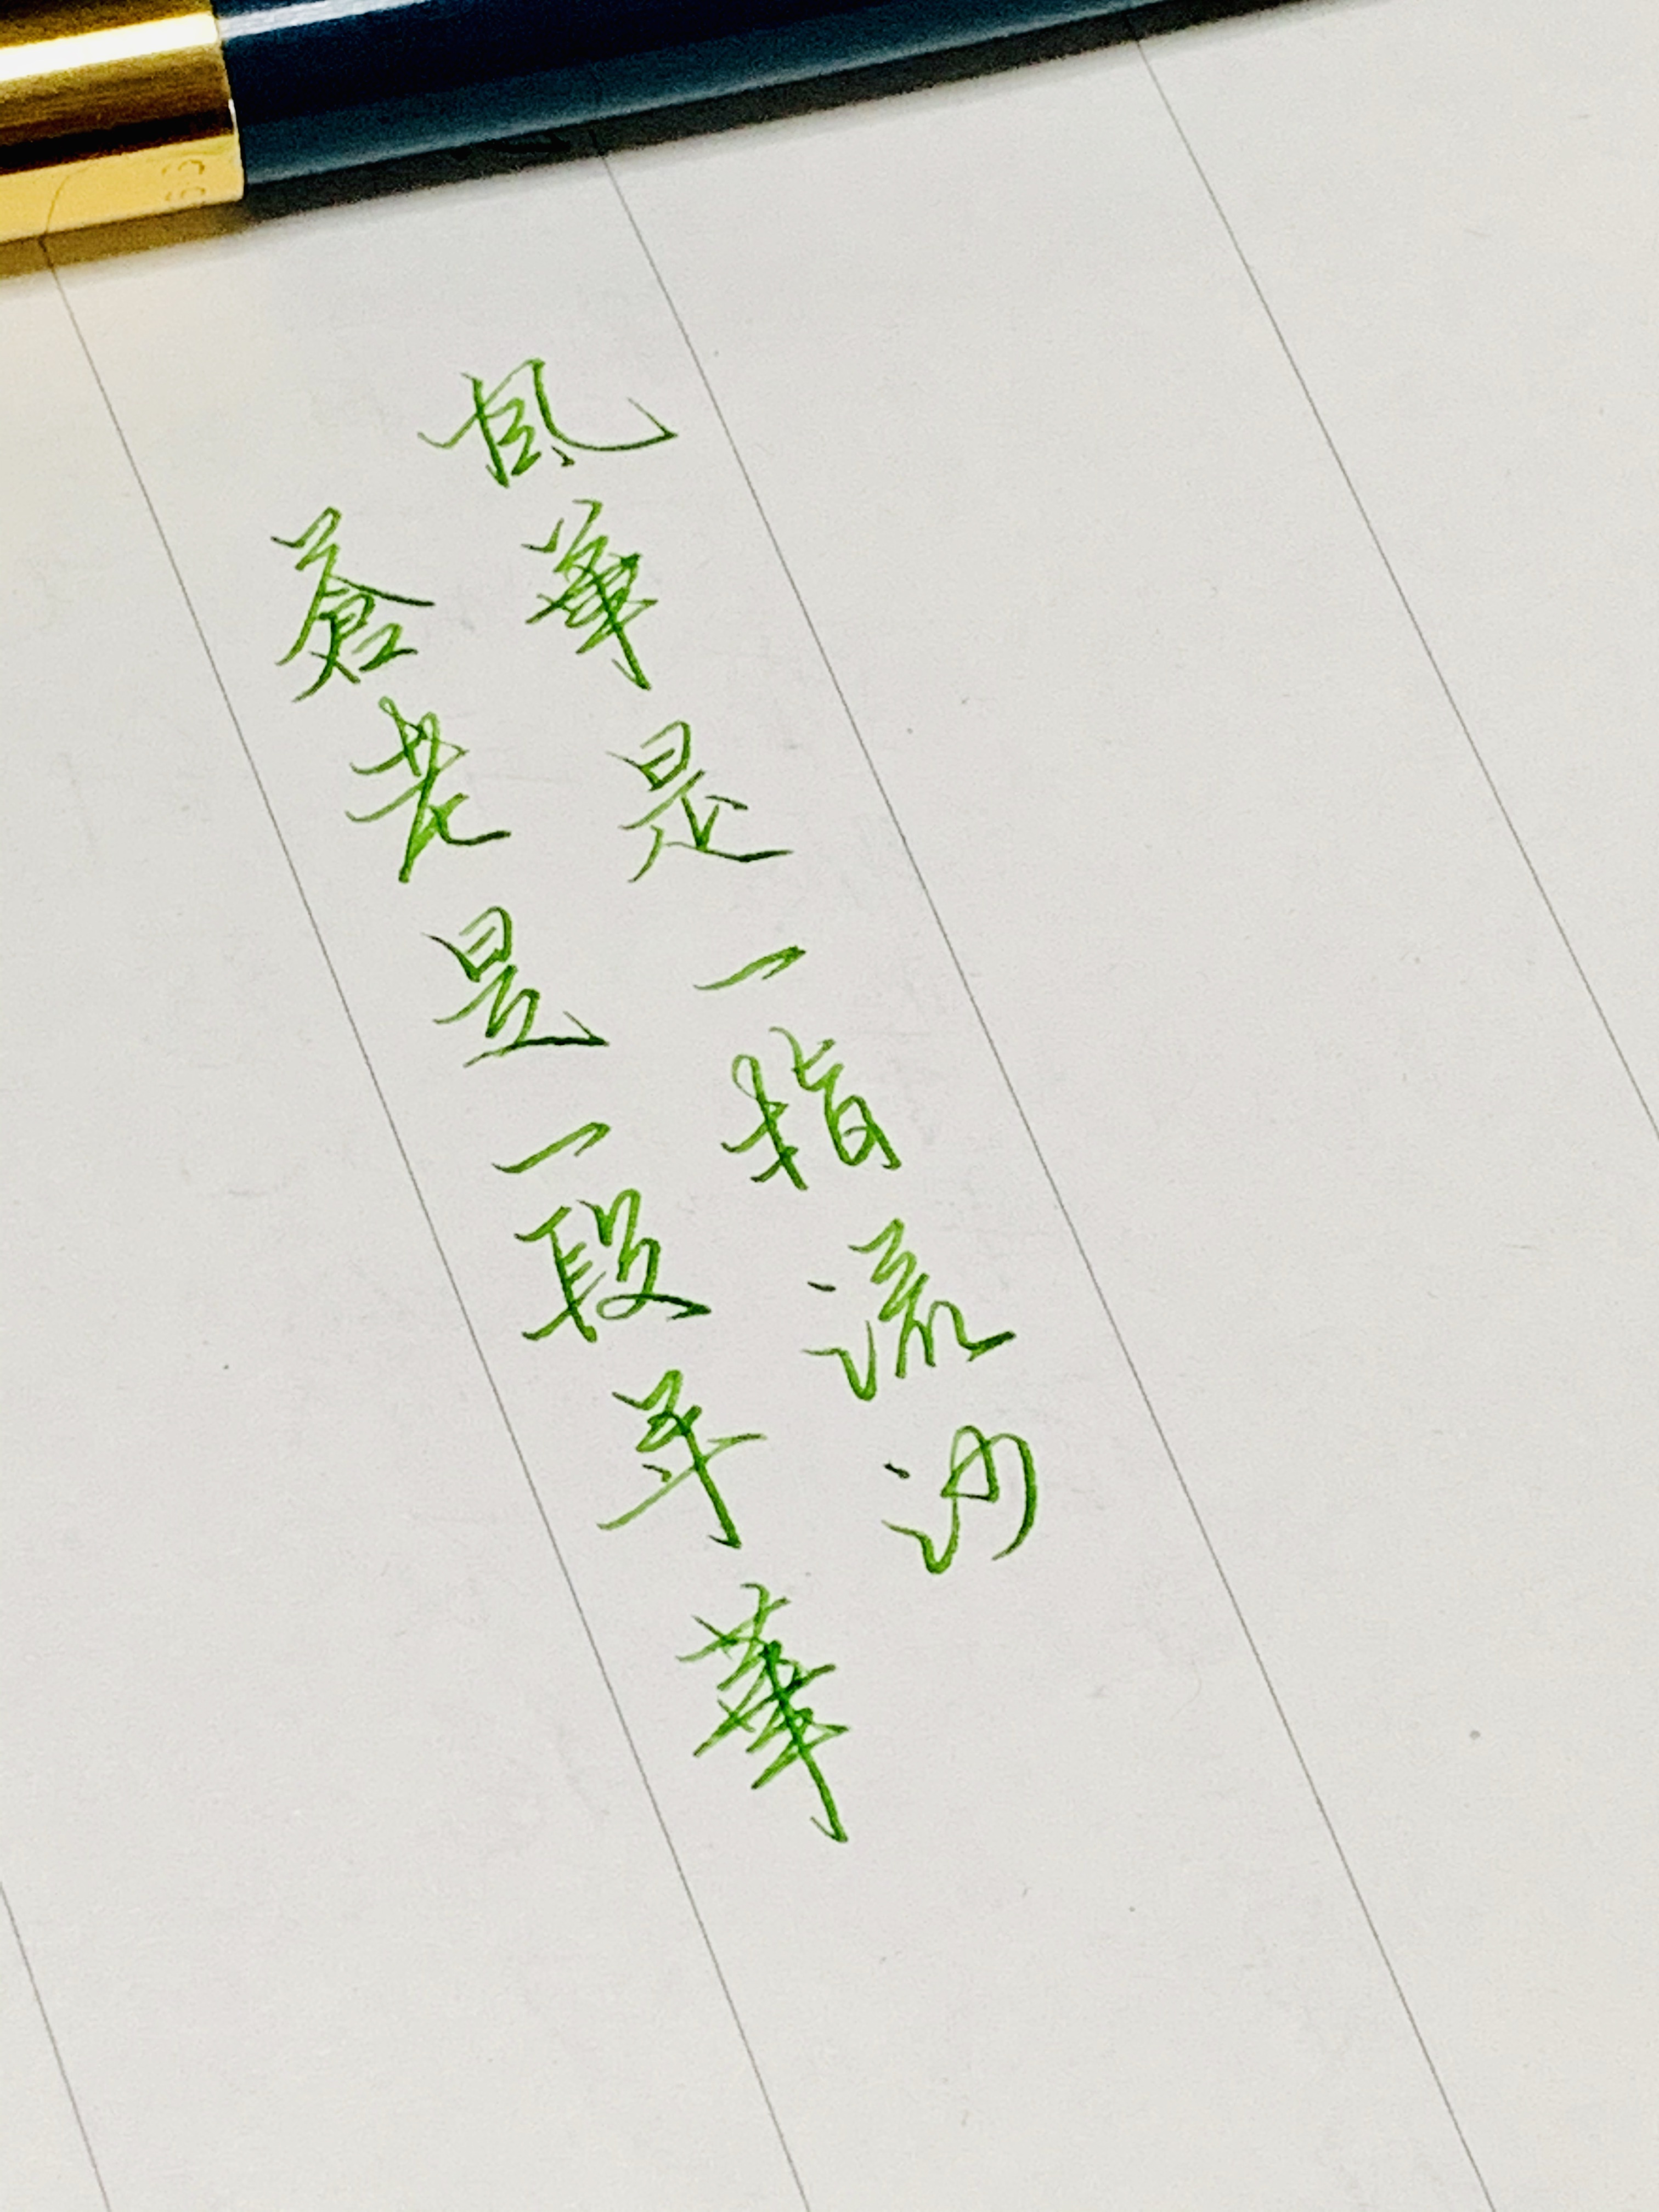 風華是一指流沙
蒼老是一段年華